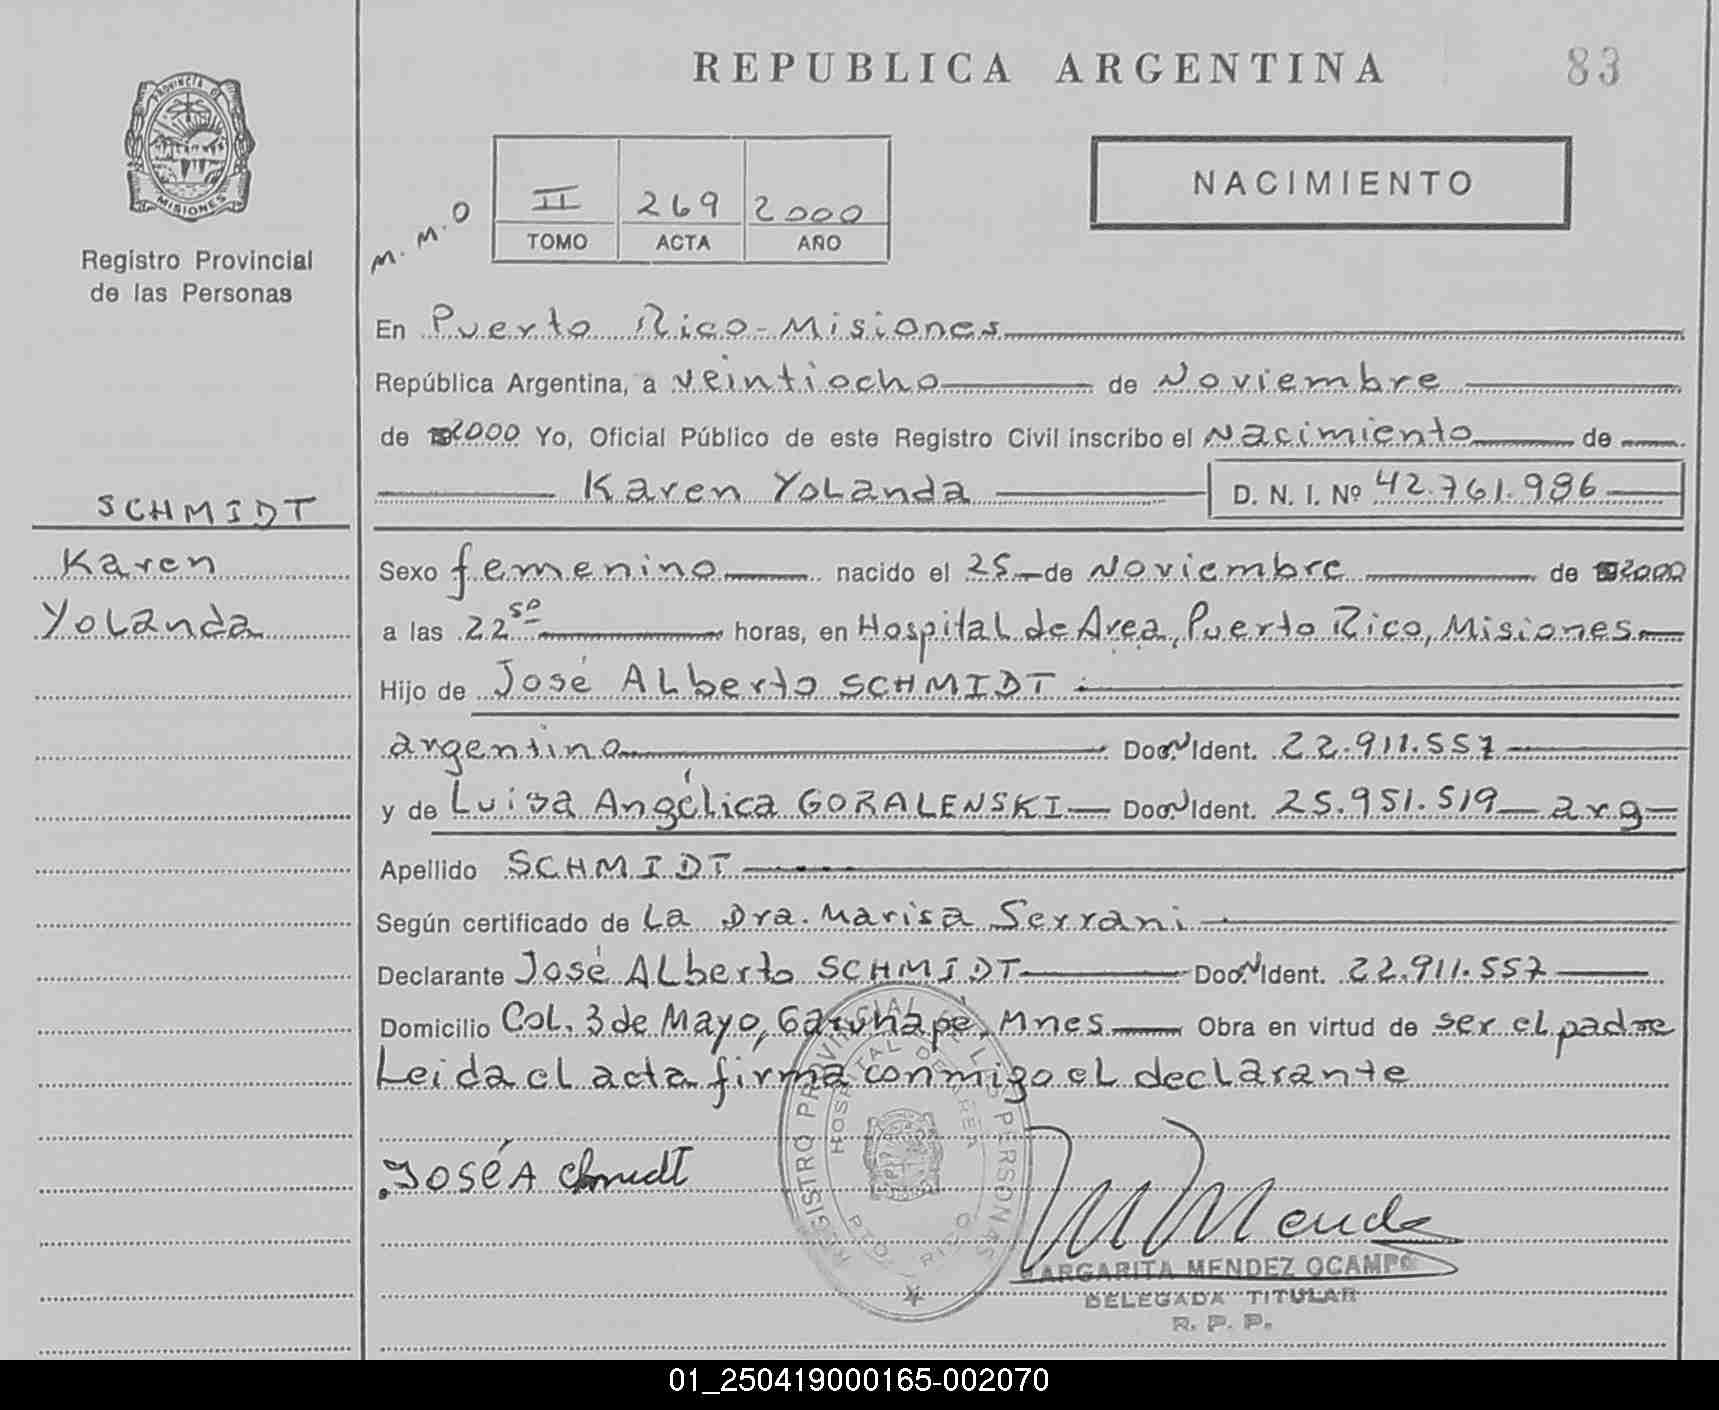 REPUBLICA ARGENTINA
83
PROVINCIA DE
MISIONES
Registro Provincial
de las Personas
NACIMIENTO
M. M. O
II 269 2000
TOMO ACTA AÑO
En Puerto Rico - Misiones
República Argentina, a veintiocho de Noviembre
de 2000 Yo, Oficial Público de este Registro Civil inscribo el Nacimiento de
Karen Yolanda D. N. I. Nº 42.761.986
SCHMIDT
Karen
Yolanda
Sexo femenino nacido el 25 de Noviembre de 2000
a las 22 50 horas, en Hospital de Area, Puerto Rico, Misiones
Hijo de José Alberto SCHMIDT
argentino Doc. N Ident. 22.911.557
y de Luisa Angélica GORALENSKI Doc. N Ident. 25.951.519 arg
Apellido SCHMIDT
Según certificado de La Dra. Marisa Serrani
Declarante José Alberto SCHMIDT Doc. N Ident. 22.911.557
Domicilio Col. 3 de Mayo, Garuhapé, Mnes Obra en virtud de ser el padre
Leida el acta firma conmigo el declarante
REGISTRO PROVINCIAL DE LAS PERSONAS
HOSPITAL DE AREA
PTO. RICO
JOSÉ A Chmidt
M Mende
MARGARITA MENDEZ OCAMPO
DELEGADA TITULAR
R. P. P.
01_250419000165-002070